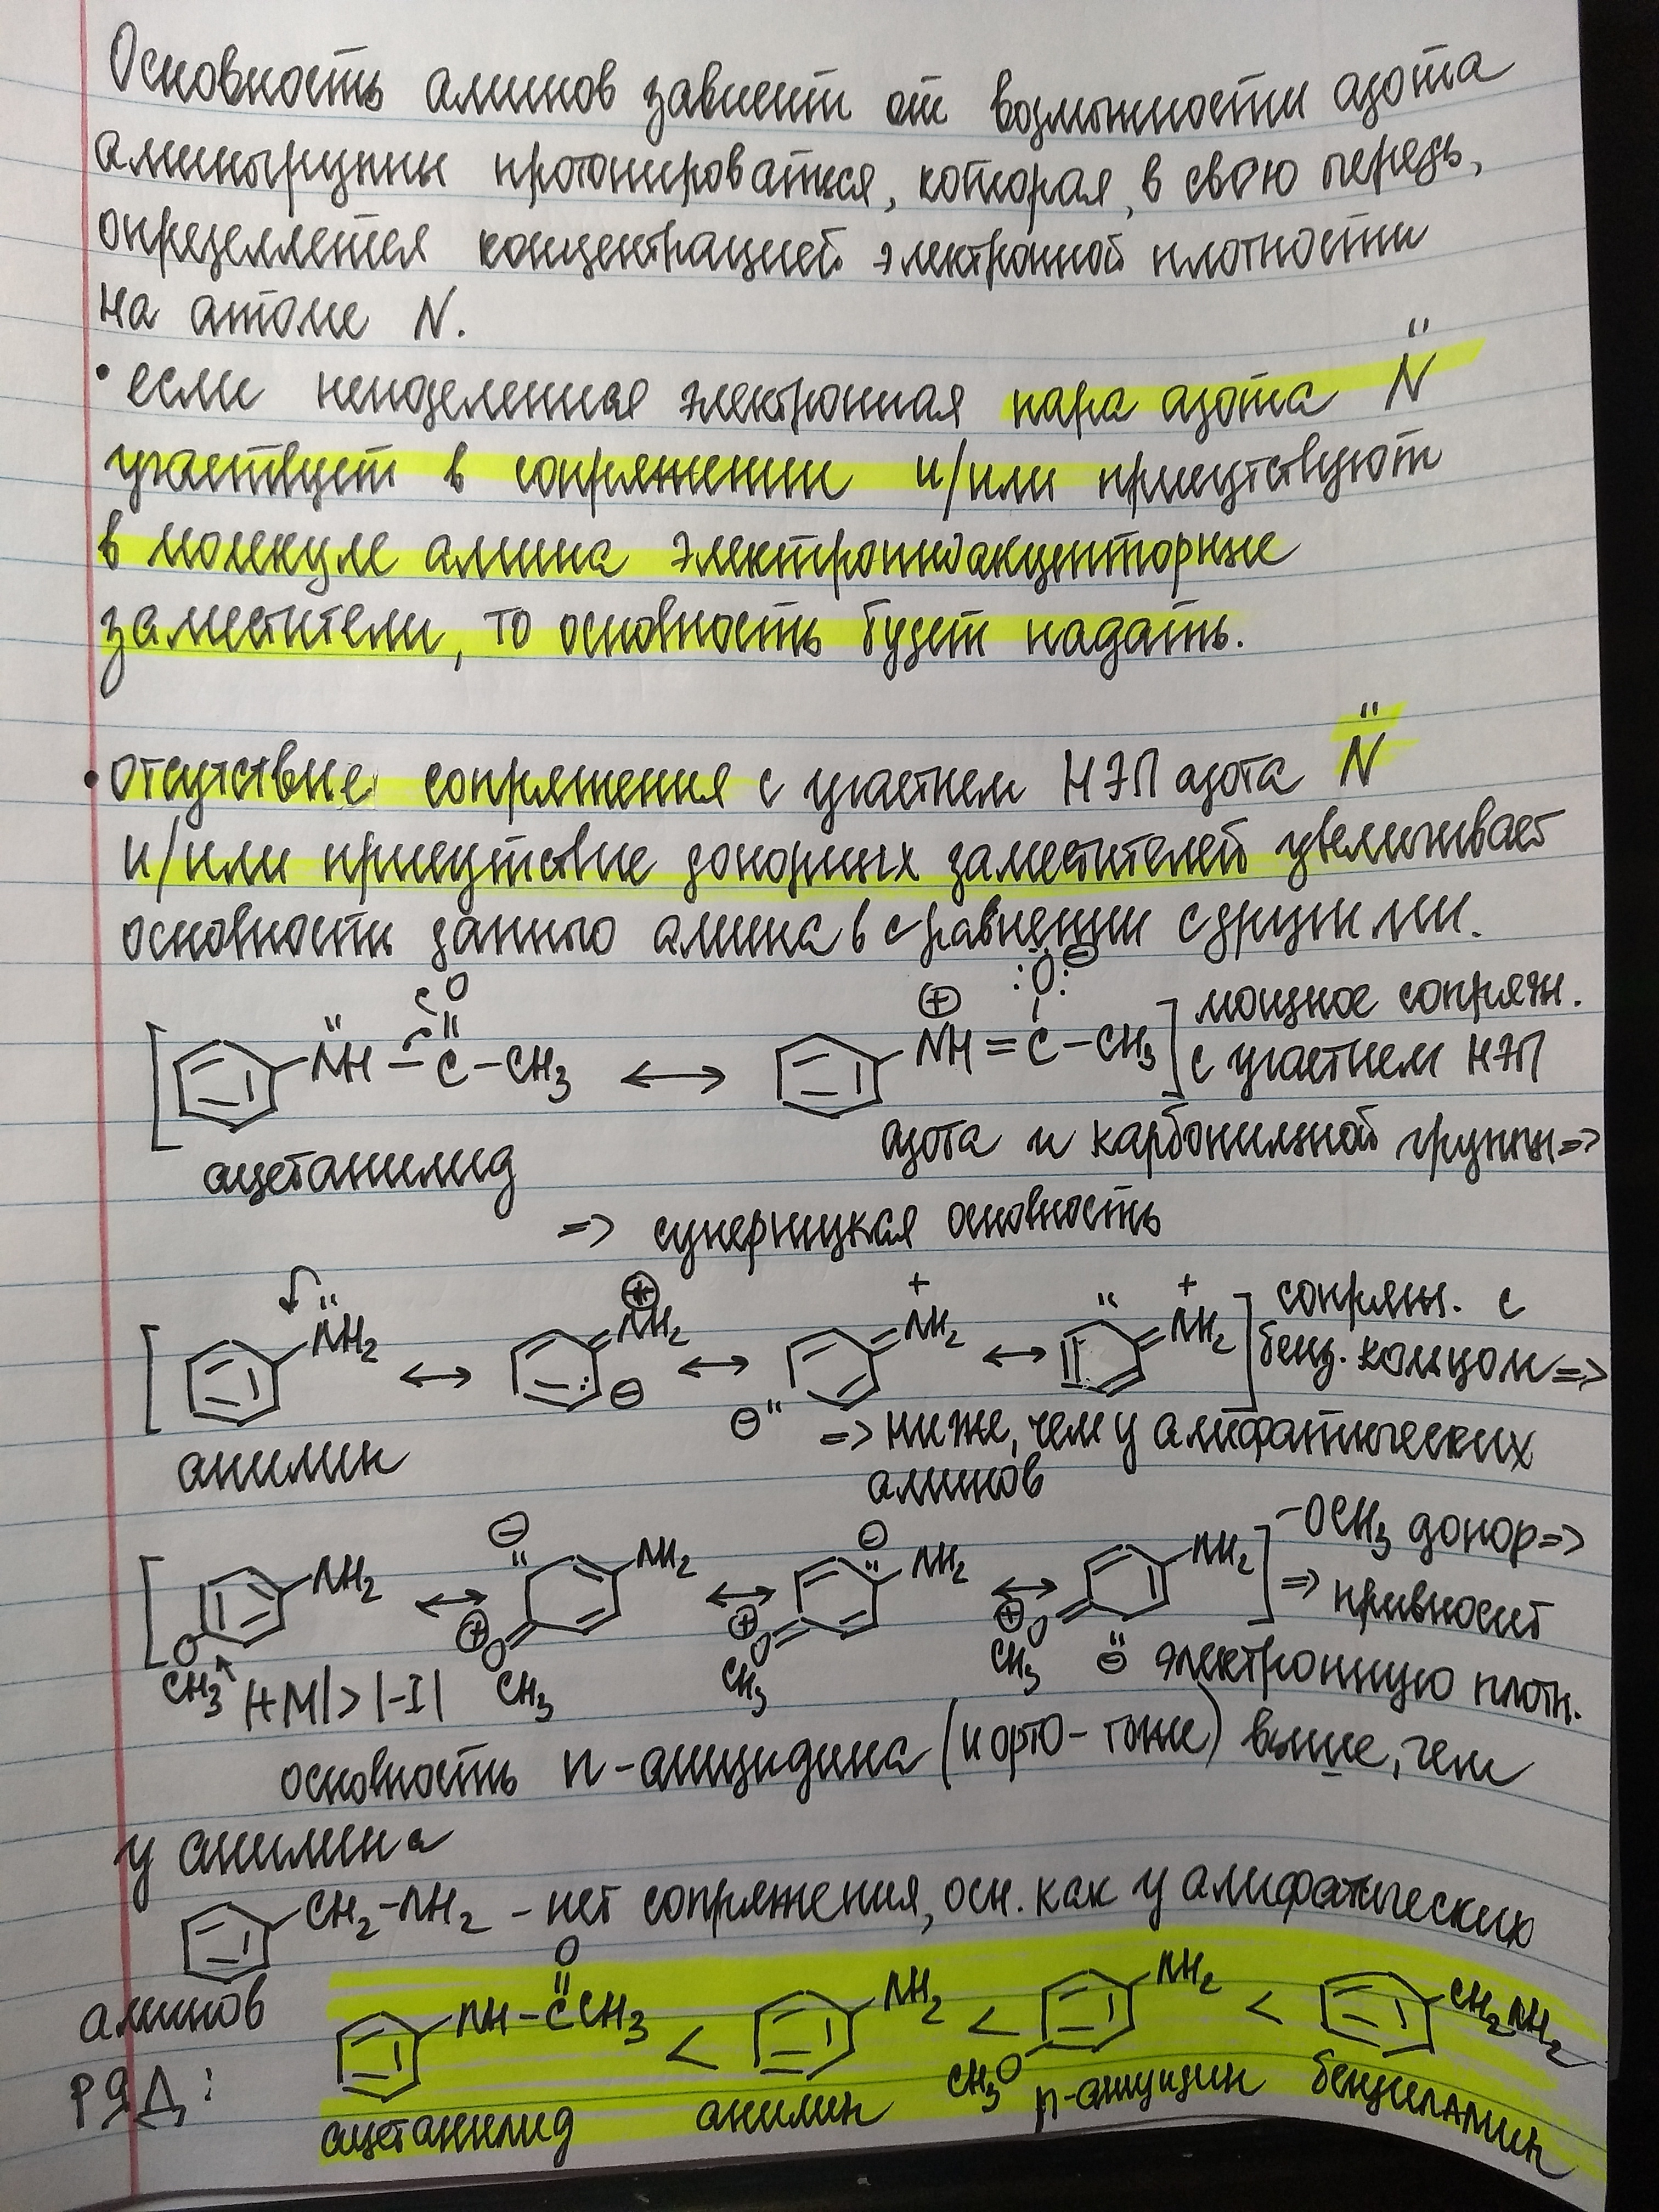 Основность аминов зависит от возможности азота
аминогруппы протонироваться, которая, в свою очередь,
определяется концентрацией электронной плотности
на атоме N.
• если неподеленная электронная пара азота N̈
участвует в сопряжении и/или присутствуют
в молекуле амина электронноакцепторные
заместители, то основность будет падать.
• отсутствие сопряжения с участием НЭП азота N̈
и/или присутствие донорных заместителей увеличивает
основность данного амина в сравнении с другими.
[ N̈H – C – CH₃ ⟷ NH = C – CH₃ ] мощное сопряж.
O ⊕ :O: ⊖
с участием НЭП
ацетанилид азота и карбонильной группы =>
=> супернизкая основность
[ N̈H₂ ⟷ ⊕ NH₂ ⊖ ⟷ + NH₂ ⊖ ⟷ + NH₂ ] сопряж. с
бенз. кольцом =>
анилин => ниже, чем у алифатических
аминов
[ NH₂ ⟷ ⊖ NH₂ ⟷ ⊖ NH₂ ⟷ NH₂ ] -OCH₃ донор =>
O ⊕ O ⊕ O ⊕ O => привносит
CH₃ CH₃ CH₃ CH₃ ⊖ электронную плотн.
|+M| > |-I|
основность п-анизидина (и орто- тоже) выше, чем
у анилина
CH₂-NH₂ - нет сопряжения, осн. как у алифатических
аминов
РЯД: NH-CCH₃ < NH₂ < NH₂ < CH₂NH₂
O CH₃O
ацетанилид анилин п-анизидин бензиламин